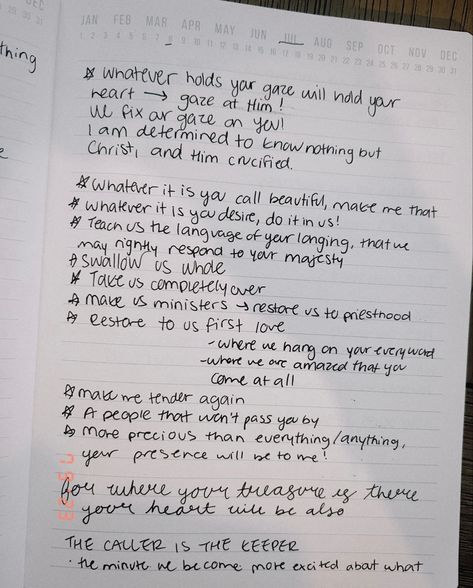 DEC
29 30 31
JAN FEB MAR APR MAY JUN JUL AUG SEP OCT NOV DEC
1 2 3 4 5 6 7 8 9 10 11 12 13 14 15 16 17 18 19 20 21 22 23 24 25 26 27 28 29 30 31
thing
☆ whatever holds your gaze will hold your
heart → gaze at Him!
We fix our gaze on you!
I am determined to know nothing but
Christ, and Him crucified.
☆ whatever it is you call beautiful, make me that
☆ whatever it is you desire, do it in us!
☆ Teach us the language of your longing, that we
may rightly respond to your majesty
☆ swallow us whole
☆ Take us completely over
☆ make us ministers → restore us to priesthood
☆ Restore to us first love
- where we hang on your every word
- where we are amazed that you
come at all
☆ make me tender again
☆ A people that won't pass you by
☆ more precious than everything/anything,
your presence will be to me!
for where your treasure is there
your heart will be also
THE CALLER IS THE KEEPER
· the minute we become more excited about what